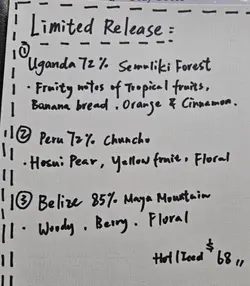 Limited Release :
① Uganda 72% Semuliki Forest
· Fruity notes of Tropical fruits,
Banana bread . Orange & Cinnamon.
② Peru 72% Chuncho
· Hosui Pear, Yellow fruit, Floral
③ Belize 85% Maya Mountain
· Woody . Berry . Floral
Hot/Iced $68,,